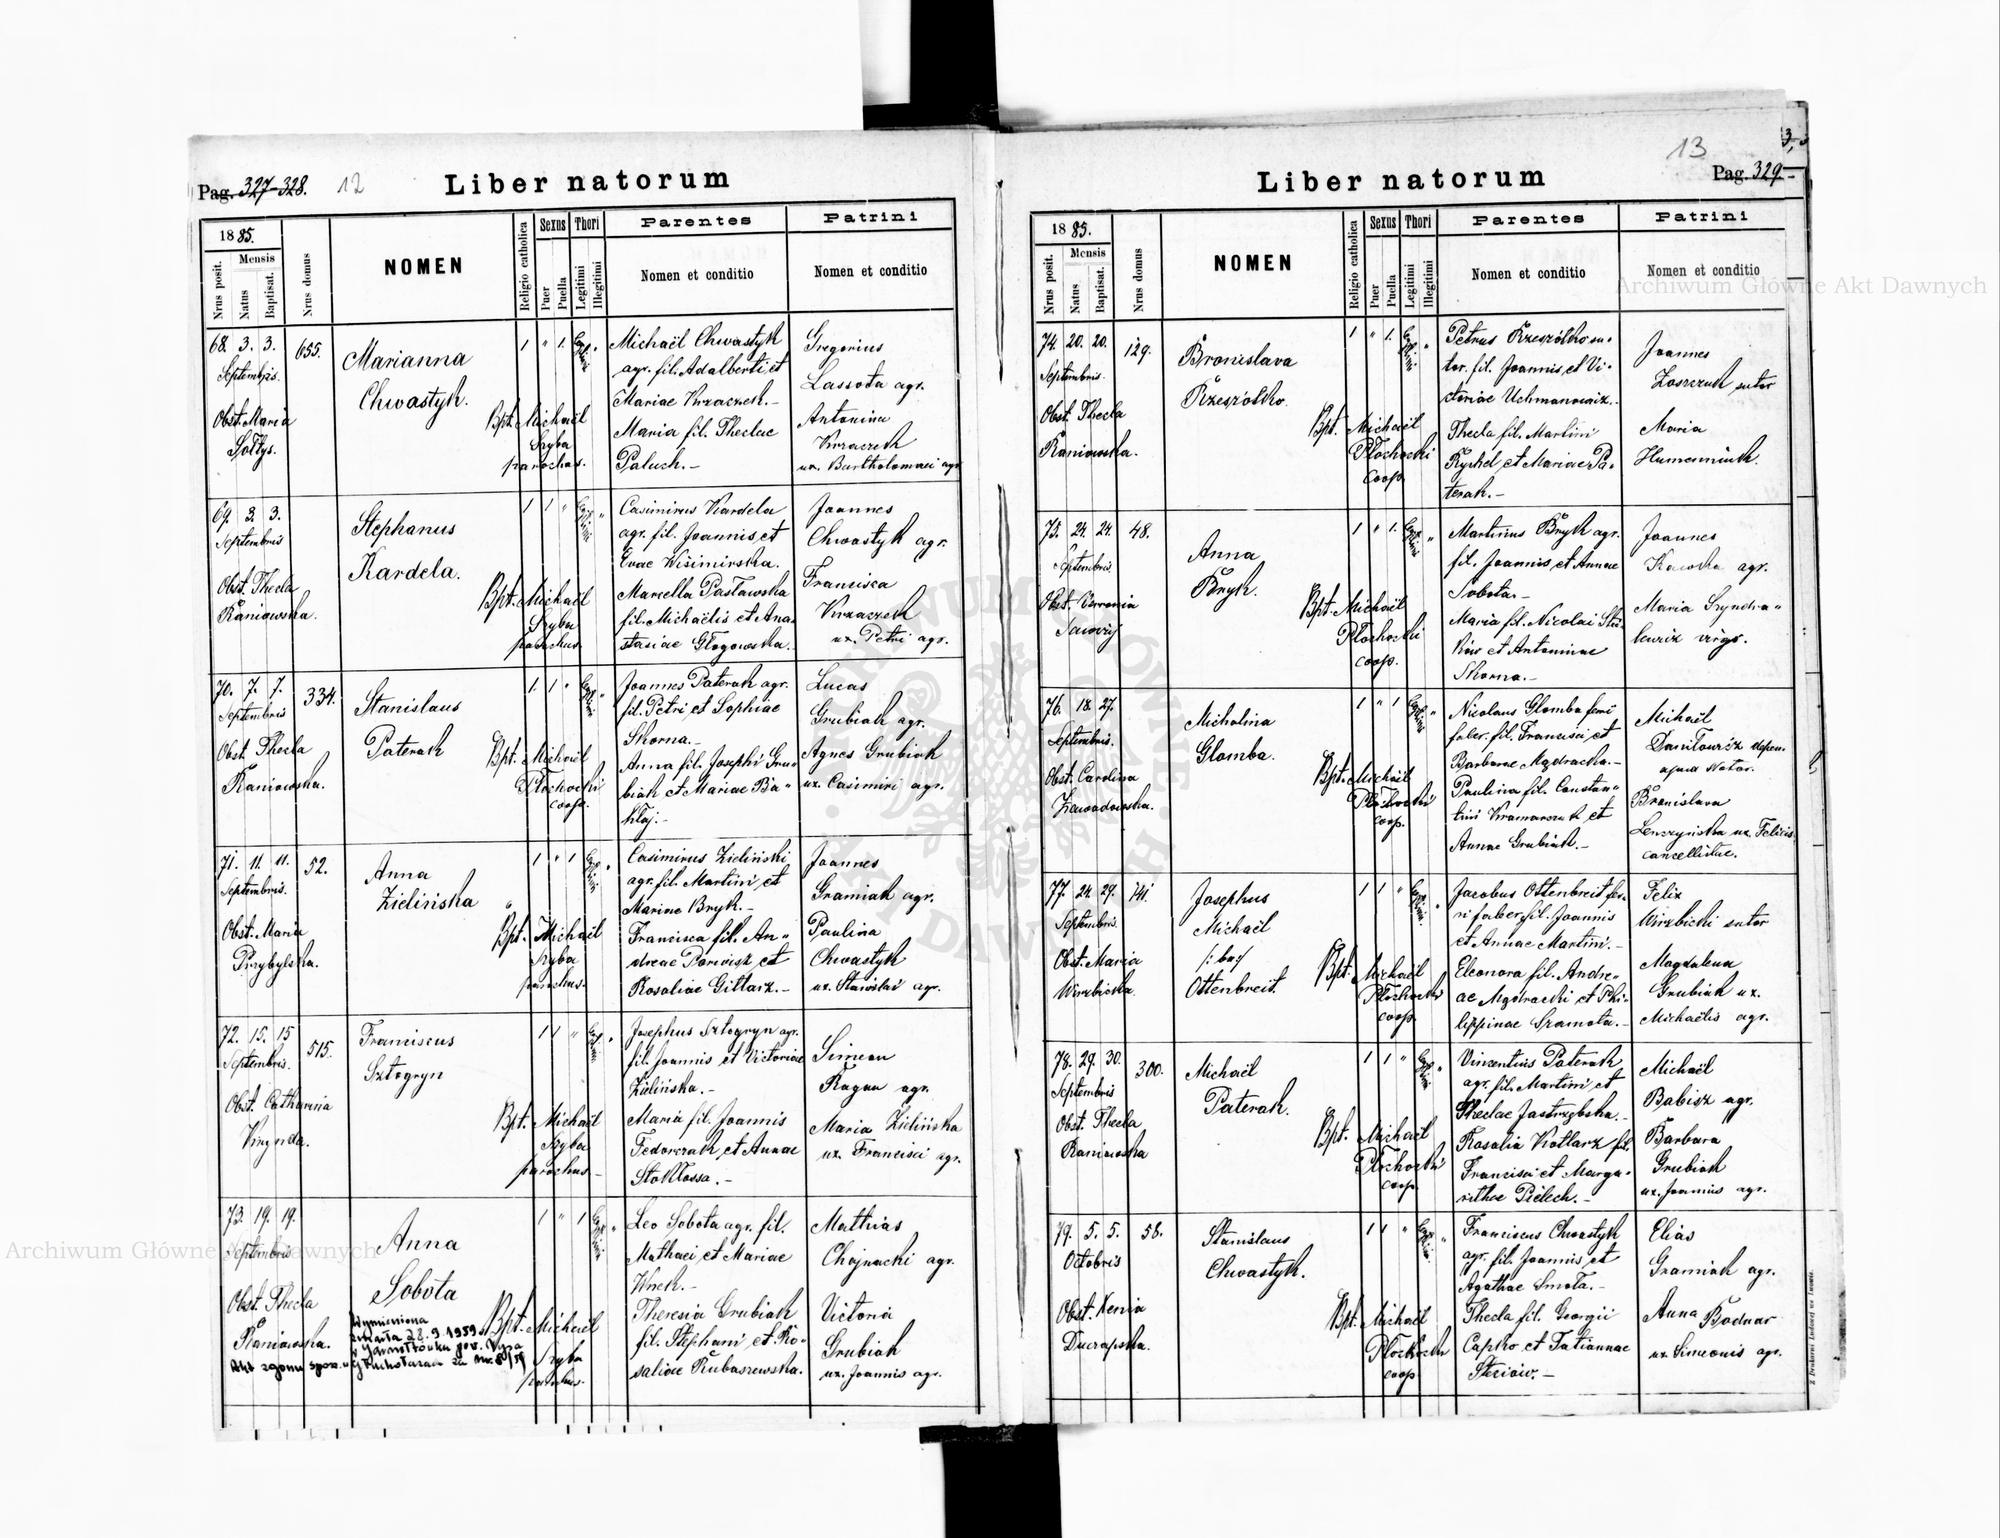 Pag. 327-328. 12 Liber natorum
1885.
Mensis
Nrus posit.
Natus
Baptisat.
Nrus domus
NOMEN
Religio catholica
Sexus
Puer
Puella
Thori
Legitimi
Illegitimi
Parentes
Nomen et conditio
Patrini
Nomen et conditio
68. 3. 3. 655.
Septembris.
Obst. Maria
Sołtys.
Marianna
Chwastyk.
Bpt. Michaël
Szyba
parochus.
Michaël Chwastyk
agr. fil. Adalberti et
Mariae Krzaczek.-
Maria fil. Theclae
Paluch.-
Gregorius
Lassota agr.
Antonina
Krzaczek
ux. Bartholomaei agr.
69. 3. 3.
Septembris
Obst. Thecla
Kaniowska.
Stephanus
Kardela.
Bpt. Michaël
Szyba
parochus.
Casimirus Kardela
agr. fil. Joannis et
Evae Wisimirska.
Marcella Pasławska
fil. Michaëlis et Ana-
stasiae Głogowska.
Joannes
Chwastyk agr.
Francisca
Krzaczek
ux. Petri agr.
70. 7. 7. 334.
Septembris
Obst. Thecla
Kaniowska.
Stanislaus
Paterak
Bpt. Michaël
Płochocki
coop.
Joannes Paterak agr.
fil. Petri et Sophiae
Skorna.-
Anna fil. Josephi Gru-
biak et Mariae Ba-
kłaj.-
Lucas
Grubiak agr.
Agnes Grubiak
ux. Casimiri agr.
71. 11. 11. 52.
Septembris.
Obst. Maria
Przybylska.
Anna
Zielińska
Bpt. Michaël
Szyba
parochus.
Casimirus Zieliński
agr. fil. Martini et
Mariae Bryk.-
Francisca fil. An-
dreae Parwisz et
Rosaliae Gitlarz.-
Joannes
Gramiak agr.
Paulina
Chwastyk
ux. Stanislai agr.
72. 15. 15 515.
Septembris.
Obst. Catharina
Krynda.
Franciscus
Sztogryn
Bpt. Michaël
Szyba
parochus.-
Josephus Sztogryn agr.
fil. Joannis et Victoriae
Zielińska.-
Maria fil. Joannis
Fedorczak et Annae
Stokłossa.-
Simeon
Kagan agr.
Maria Zielińska
ux. Francisci agr.
73. 19. 19.
Septembris
Obst. Thecla
Kaniowska.
Anna
Sobota
Wymieniona
zmarła 28.9.1959 r.
Akt zgonu
Bpt. Michaël
Szyba
parochus.
Leo Sobota agr. fil.
Mathaei et Mariae
Wnek.-
Theresia Grubiak
fil. Stephani et Ro-
saliae Rubaszewska.
Mathias
Chojnacki agr.
Victoria
Grubiak
ux. Joannis agr.
13
Liber natorum Pag. 329
1885.
Mensis
Nrus posit.
Natus
Baptisat.
Nrus domus
NOMEN
Religio catholica
Sexus
Puer
Puella
Thori
Legitimi
Illegitimi
Parentes
Nomen et conditio
Patrini
Nomen et conditio
74. 20. 20. 129.
Septembris.
Obst. Thecla
Kaniowska.
Bronislava
Rzeszótko.
Bpt. Michaël
Płochocki
coop.
Petrus Rzeszótko su-
tor. fil. Joannis et Vi-
ctoriae Uchmanowicz.
Thecla fil. Martini
Rychel et Mariae Pa-
terak.-
Joannes
sutor
Maria
Humenniuk.
75. 24. 24. 48.
Septembris
Obst.
Anna
Bryk.
Bpt. Michaël
Płochocki
coop.
Martinus Bryk agr.
fil. Joannis et Annae
Sobota.-
Maria fil. Nicolai
et Antoninae
Skorna.-
Joannes
Kawka agr.
Maria Szyndra-
lewicz virgo.
76. 18. 27.
Septembris.
Obst. Carolina
Zawadowska.
Michalina
Glomba.
Bpt. Michaël
Płochocki
coop.
Nicolaus Glomba ferri
faber. fil. Francisci et
Barbarae Mądracka.-
Paulina fil. Constan-
tini Kramarczuk et
Annae Grubiak.-
Michaël
Daniłowicz
apud Notar.
Bronislava
Lenczyńska ux. Felicis
cancellistae.
77. 24. 29. 141.
Septembris.
Obst. Maria
Wirzbicka.
Josephus
Michaël
/: ba :/
Ottenbreit.
Bpt. Michaël
Płochocki
coop.
Jacobus Ottenbreit fer-
ri faber fil. Joannis
et Annae Martini.-
Eleonora fil. Andre-
ae Mądracki et Phi-
lippinae Szamota.-
Felix
Wirzbicki sutor
Magdalena
Grubiak ux.
Michaëlis agr.
78. 29. 30. 300.
Septembris
Obst. Thecla
Kaniowska
Michaël
Paterak.
Bpt. Michaël
Płochocki
coop.
Vincentius Paterak
agr. fil. Martini et
Theclae Jastrzębska.-
Rosalia Kotlarz fil.
Francisci et Marga-
rithae Pielech.-
Michaël
Babisz agr.
Barbara
Grubiak
ux. Joannis agr.
79. 5. 5. 58.
Octobris
Obst. Xenia
Ducrapska.
Stanislaus
Chwastyk.
Bpt. Michaël
Płochocki
coop
Franciscus Chwastyk
agr. fil. Joannis et
Agathae Smota.-
Thecla fil. Georgii
Capko et Tatiannae
Steciów.-
Elias
Gramiak agr.
Anna Bodnar
ux. Simeonis agr.
Z Drukarni Ludowej we Lwowie.
Archiwum Główne Akt Dawnych
Archiwum Główne Akt Dawnych
ARCHIWUM GŁÓWNE AKT DAWNYCH